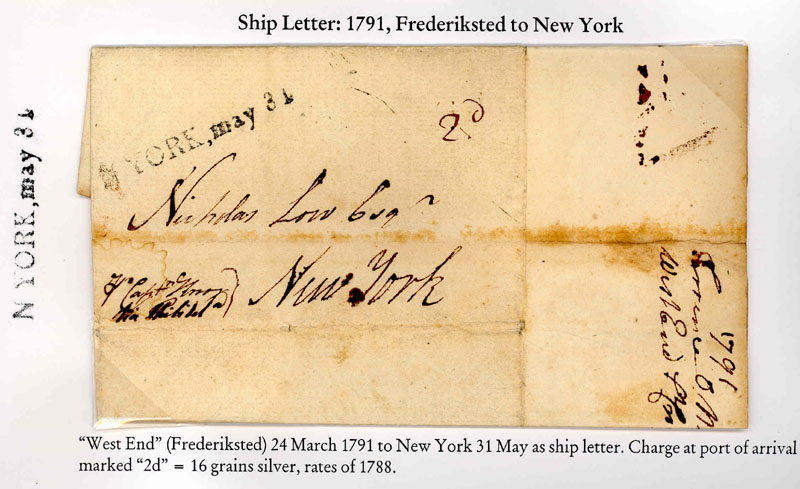 Ship Letter: 1791, Frederiksted to New York
N YORK, may 31
N YORK, may 31
2d
Nicholas Low Esqr
New York
1791
West End
"West End" (Frederiksted) 24 March 1791 to New York 31 May as ship letter. Charge at port of arrival
marked "2d" = 16 grains silver, rates of 1788.